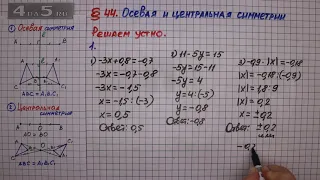 4 FOR 5.RU
§ 44. Осевая и центральная симметрии
① Осевая симметрия
Решаем устно.
1.
1) -3x+0,8=-0,7
-3x=-0,7-0,8
-3x=-1,5
x=-1,5:(-3)
x=0,5
Ответ: 0,5
2) 11-5y=15
-5y=15-11
-5y=4
y=4:(-5)
y=-0,8
Ответ: -0,8
3) -0,9·|x|=-0,18
|x|=-0,18:(-0,9)
|x|=1,8:9
|x|=0,2
x=±0,2
Ответ: ±0,2
ABC=A₁B₁C₁
② Центральная симметрия
AO=OA₁
BO=OB₁
ABC=A₁B₁C₁